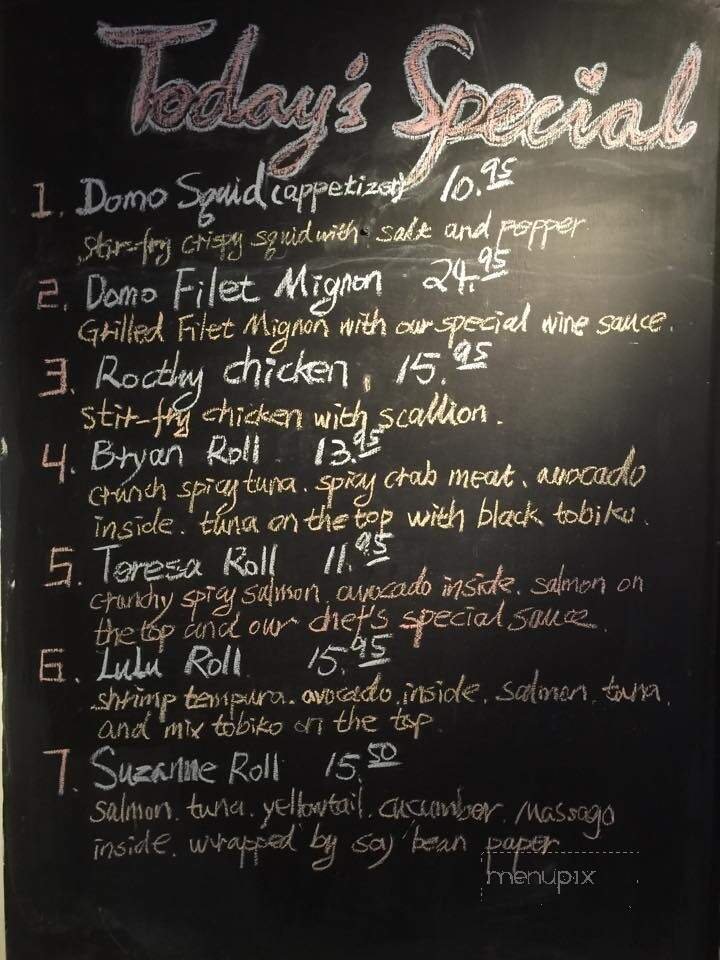 Today's Special
1. Domo Squid (appetizer) 10.95
stir-fry crispy squid with salt and popper
2. Domo Filet Mignon 24.95
Grilled Filet Mignon with our special wine sauce.
3. Rocthy chicken, 15.95
stir-fry chicken with scallion.
4. Bryan Roll 13.95
crunch spicy tuna. spicy crab meat. avocado
inside. tuna on the top with black tobiko.
5. Teresa Roll 11.95
crunchy spicy salmon. avocado inside. salmon on
the top and our chef's special sauce.
6. Lulu Roll 15.95
shrimp tempura. avocado inside. salmon. tuna.
and mix tobiko on the top.
7. Suzanne Roll 15.50
salmon. tuna. yellowtail. cucumber. Massago
inside. wrapped by soy bean paper
menupix